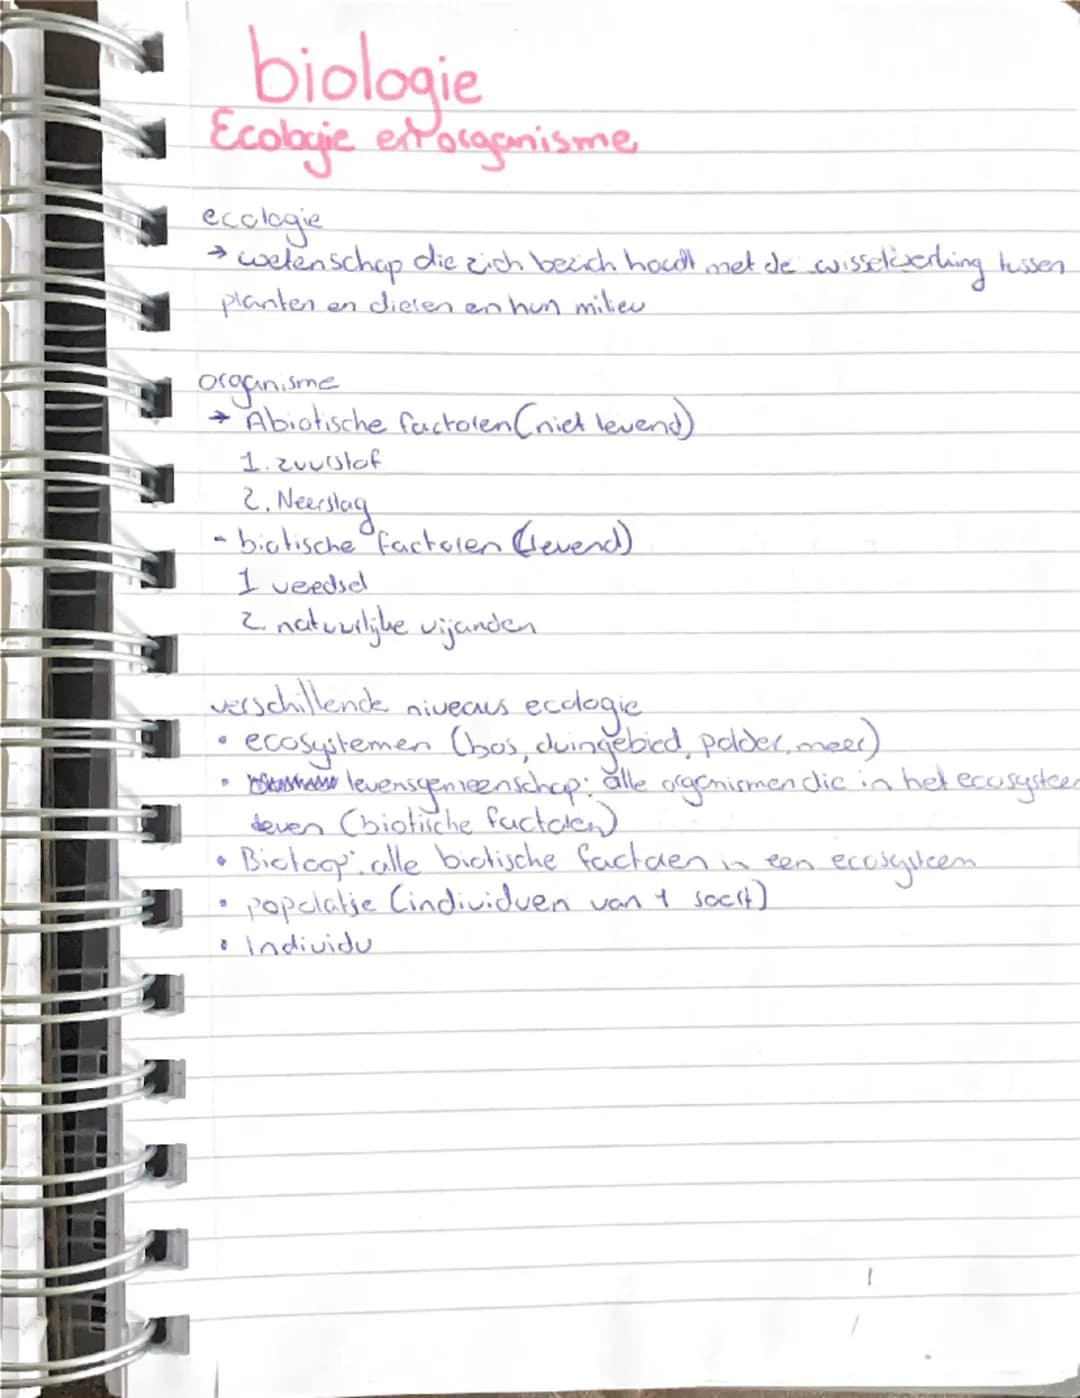 biologie
Ecologie en organisme
ecologie
→ wetenschap die zich bezich houdt met de wisselwerking tussen
planten en dieren en hun milieu
organisme
→ Abiotische factoren (niet levend)
1. zuurstof
2. Neerslag
- biotische factoren (levend)
1 veedsel
2. natuurlijke vijanden
verschillende niveaus ecologie
• ecosystemen (bos, duingebied, polder, meer)
• levensgemeenschap: alle organismen die in het ecosysteem
leven (biotische factoren)
• Biotoop: alle biotische factoren in een ecosysteem
• populatie (individuen van 1 soort)
• Individu